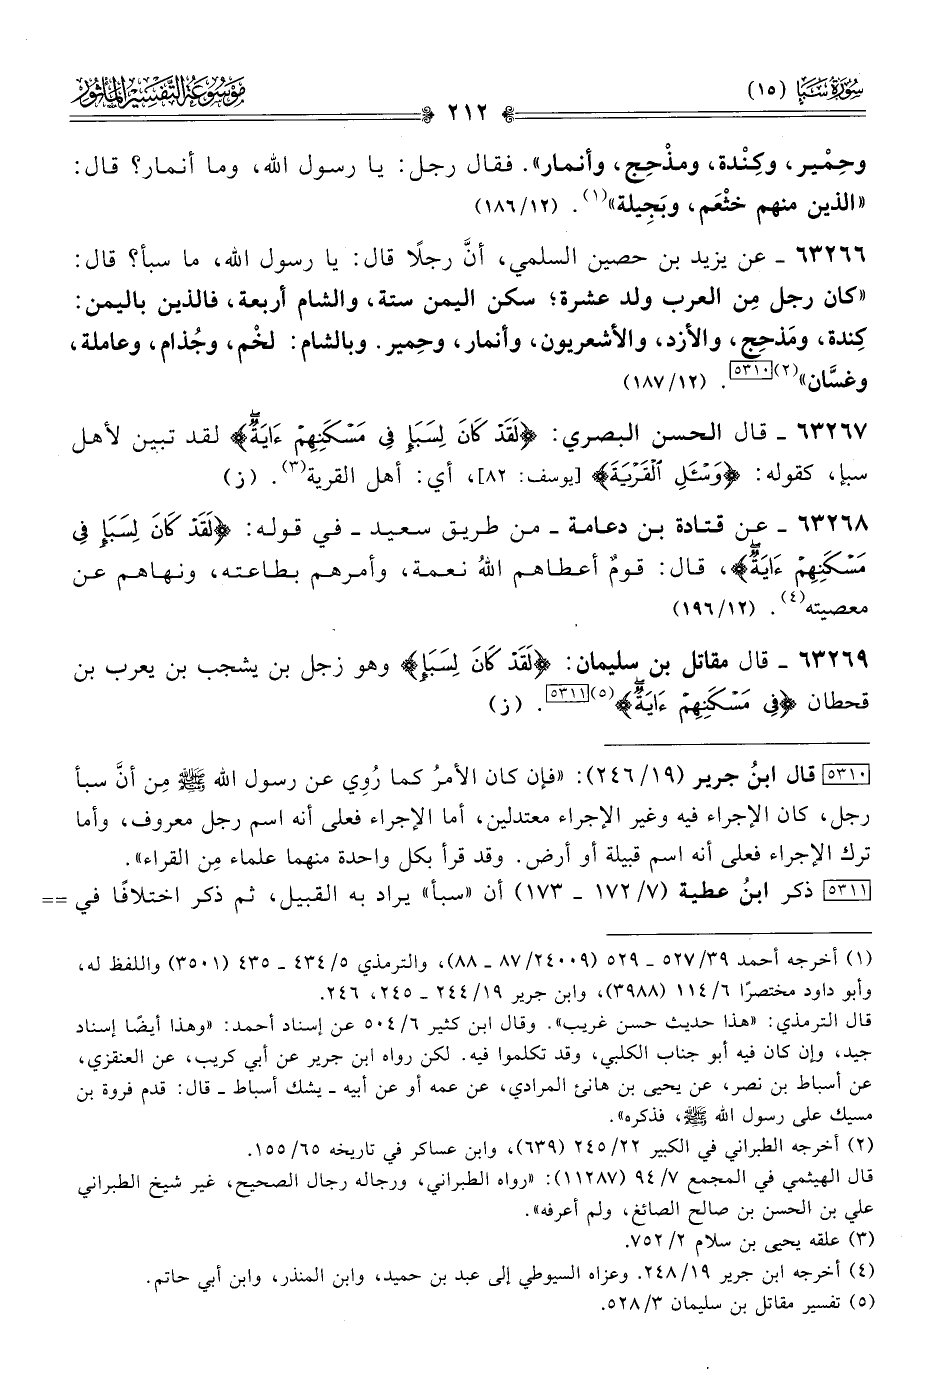 سُورَةُ سَبَإٍ (١٥)
٢١٢
مَوْسُوعَة التَّفْسِيرِ المَأْثُور
وحِمْير، وكِنْدة، ومذْحِج، وأنمار». فقال رجل: يا رسول الله، وما أنمار؟ قال:
«الذين منهم خثْعَم، وبَجِيلة»(١). (١٨٦/١٢)
٦٣٢٦٦ ـ عن يزيد بن حصين السلمي، أنَّ رجلًا قال: يا رسول الله، ما سبأ؟ قال:
«كان رجل مِن العرب ولد عشرة؛ سكن اليمن ستة، والشام أربعة، فالذين باليمن:
كِندة، ومَذحِج، والأزد، والأشعريون، وأنمار، وحِمير. وبالشام: لخْم، وجُذام، وعاملة،
وغسَّان»(٢)[٥٣١٠]. (١٨٧/١٢)
٦٣٢٦٧ ـ قال الحسن البصري: ﴿لَقَدْ كَانَ لِسَبَإٍ فِي مَسْكَنِهِمْ ءَايَةٌ﴾ لقد تبين لأهل
سبإ، كقوله: ﴿وَسْـَٔلِ ٱلْقَرْيَةَ﴾ [يوسف: ٨٢]، أي: أهل القرية(٣). (ز)
٦٣٢٦٨ ـ عن قتادة بن دعامة ـ من طريق سعيد ـ في قوله: ﴿لَقَدْ كَانَ لِسَبَإٍ فِي
مَسْكَنِهِمْ ءَايَةٌ﴾، قال: قومٌ أعطاهم اللهُ نعمة، وأمرهم بطاعته، ونهاهم عن
معصيته(٤). (١٩٦/١٢)
٦٣٢٦٩ ـ قال مقاتل بن سليمان: ﴿لَقَدْ كَانَ لِسَبَإٍ﴾ وهو زجل بن يشجب بن يعرب بن
قحطان ﴿فِي مَسْكَنِهِمْ ءَايَةٌ﴾(٥)[٥٣١١]. (ز)
[٥٣١٠] قال ابنُ جرير (٢٤٦/١٩): «فإن كان الأمرُ كما رُوِي عن رسول الله ﷺ مِن أنَّ سبأ
رجل، كان الإجراء فيه وغير الإجراء معتدلين، أما الإجراء فعلى أنه اسم رجل معروف، وأما
ترك الإجراء فعلى أنه اسم قبيلة أو أرض. وقد قرأ بكل واحدة منهما علماء مِن القراء».
[٥٣١١] ذكر ابنُ عطية (٧/ ١٧٢ ـ ١٧٣) أن «سبأ» يراد به القبيل، ثم ذكر اختلافًا في ==
(١) أخرجه أحمد ٥٢٧/٣٩ ـ ٥٢٩ (٨٧/٢٤٠٠٩ ـ ٨٨)، والترمذي ٤٣٤/٥ ـ ٤٣٥ (٣٥٠١) واللفظ له،
وأبو داود مختصرًا ١١٤/٦ (٣٩٨٨)، وابن جرير ٢٤٤/١٩ ـ ٢٤٥، ٢٤٦.
قال الترمذي: «هذا حديث حسن غريب». وقال ابن كثير ٥٠٤/٦ عن إسناد أحمد: «وهذا أيضًا إسناد
جيد، وإن كان فيه أبو جناب الكلبي، وقد تكلموا فيه. لكن رواه ابن جرير عن أبي كريب، عن العنقزي،
عن أسباط بن نصر، عن يحيى بن هانئ المرادي، عن عمه أو عن أبيه ـ يشك أسباط ـ قال: قدم فروة بن
مسيك على رسول الله ﷺ، فذكره».
(٢) أخرجه الطبراني في الكبير ٢٤٥/٢٢ (٦٣٩)، وابن عساكر في تاريخه ١٥٥/٦٥.
قال الهيثمي في المجمع ٩٤/٧ (١١٢٨٧): «رواه الطبراني، ورجاله رجال الصحيح، غير شيخ الطبراني
علي بن الحسن بن صالح الصائغ، ولم أعرفه».
(٣) علقه يحيى بن سلام ٧٥٢/٢.
(٤) أخرجه ابن جرير ٢٤٨/١٩. وعزاه السيوطي إلى عبد بن حميد، وابن المنذر، وابن أبي حاتم.
(٥) تفسير مقاتل بن سليمان ٥٢٨/٣.